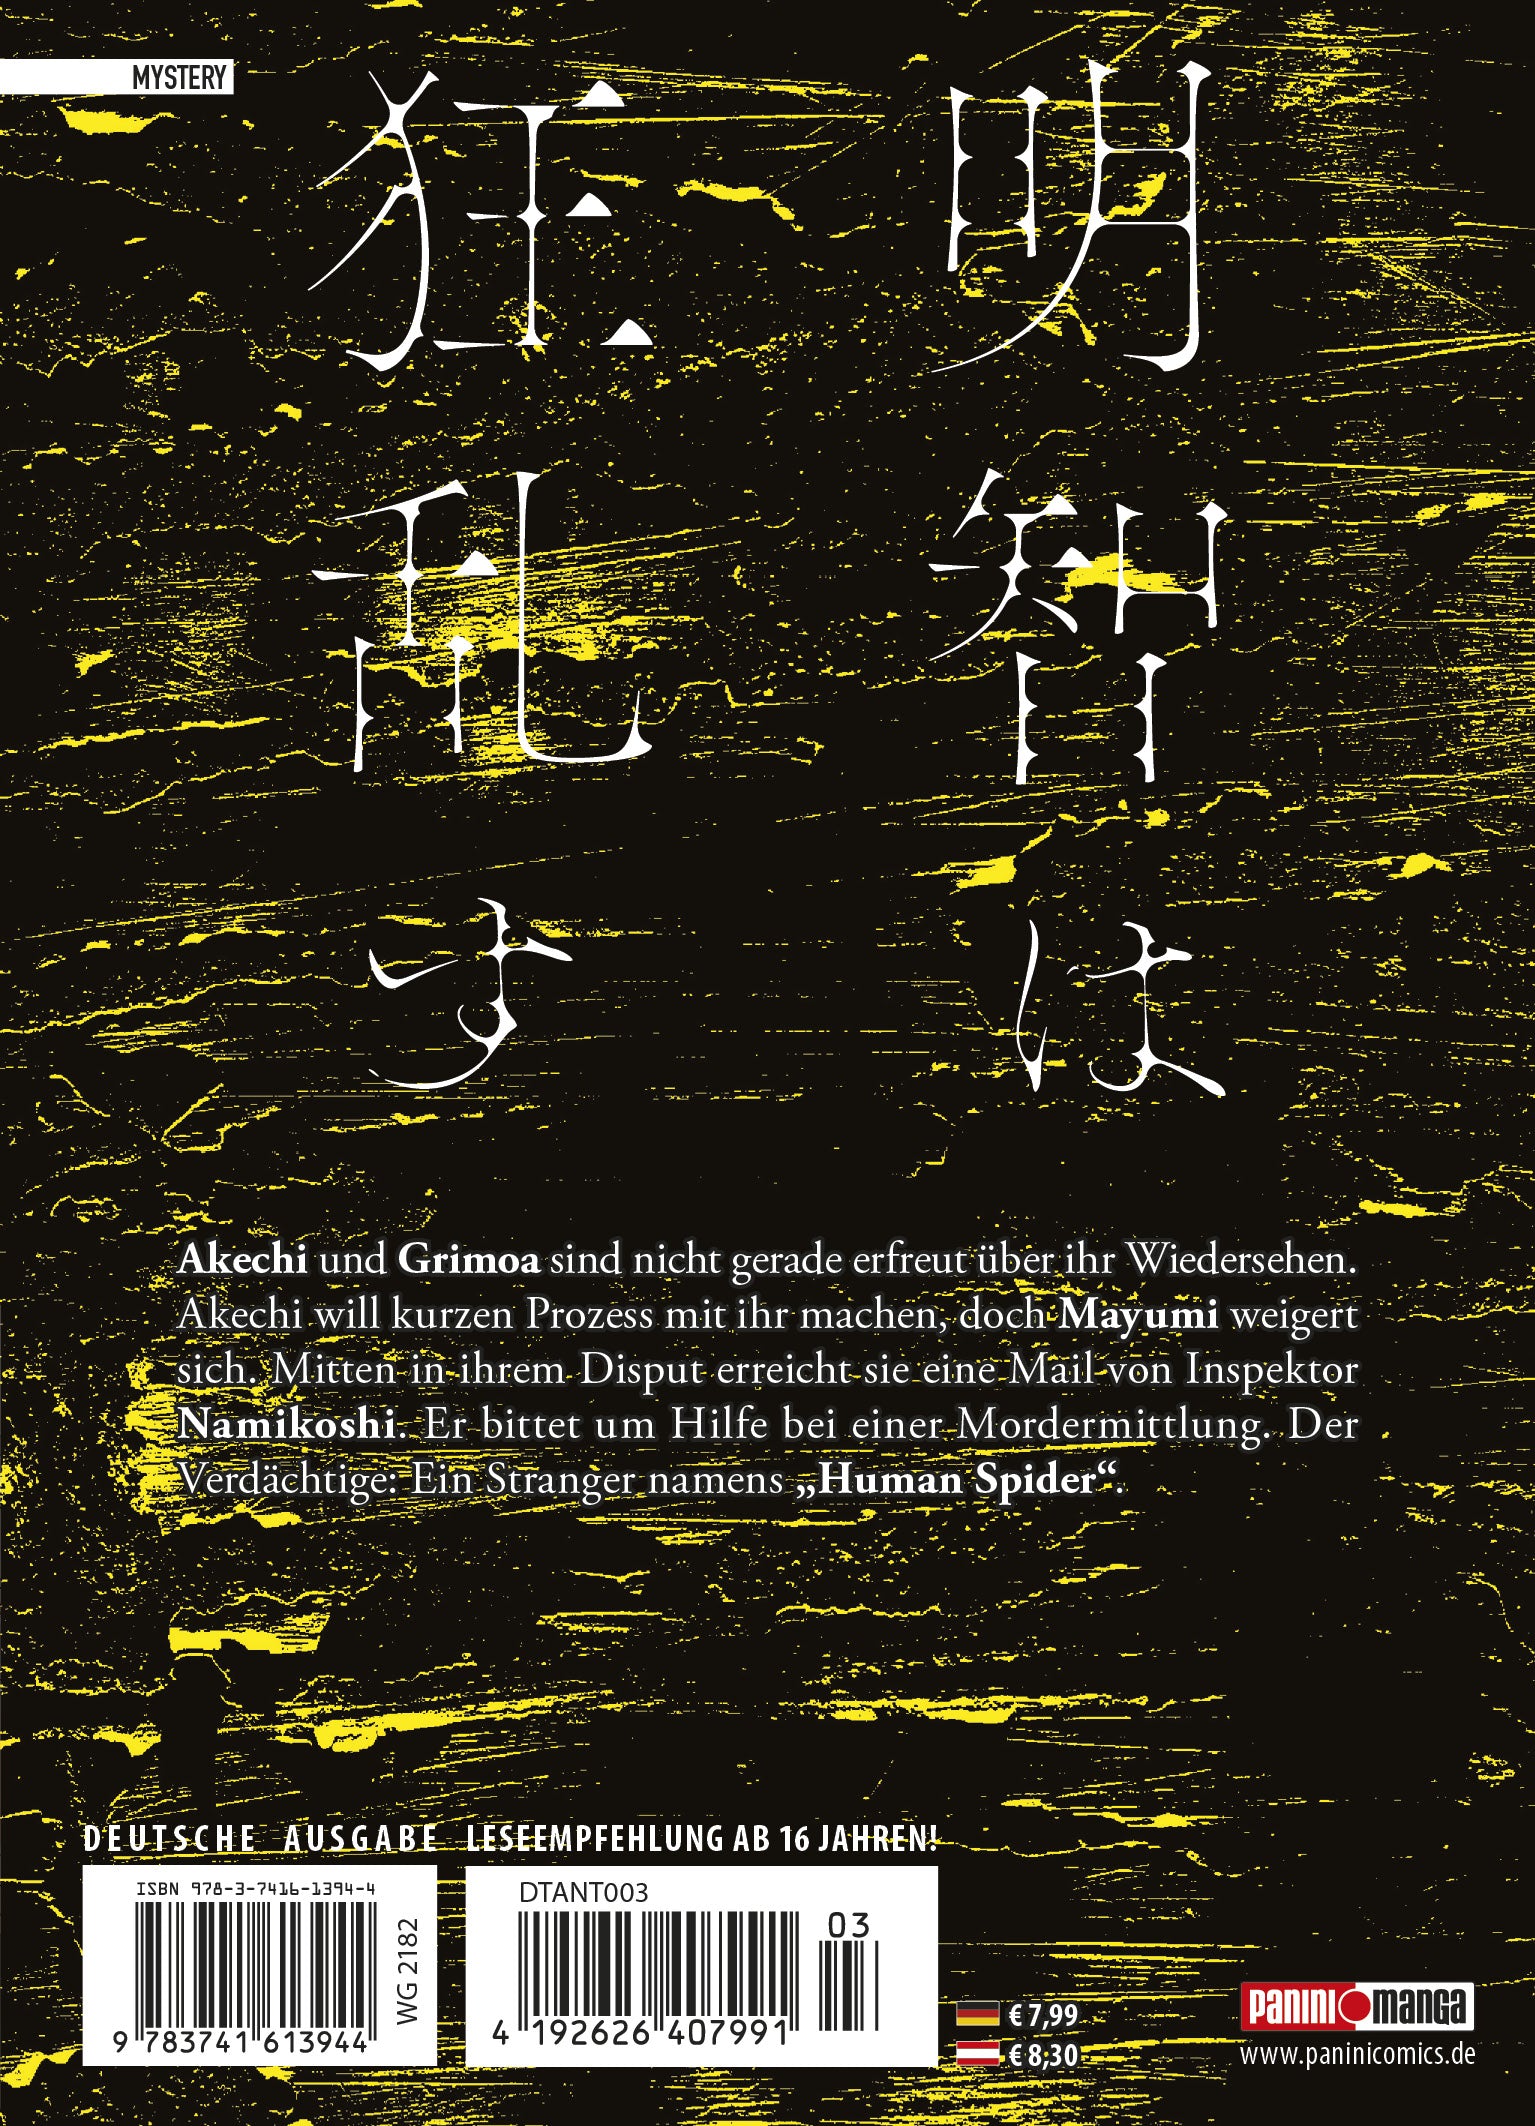 MYSTERY
明智は
狂乱す
Akechi und Grimoa sind nicht gerade erfreut über ihr Wiedersehen.
Akechi will kurzen Prozess mit ihr machen, doch Mayumi weigert
sich. Mitten in ihrem Disput erreicht sie eine Mail von Inspektor
Namikoshi. Er bittet um Hilfe bei einer Mordermittlung. Der
Verdächtige: Ein Stranger namens „Human Spider“.
DEUTSCHE AUSGABE
ISBN 978-3-7416-1394-4
9 783741 613944
WG 2182
LESEEMPFEHLUNG AB 16 JAHREN!
DTANT003
03
4 192626 407991
€ 7,99
€ 8,30
panini manga
www.paninicomics.de